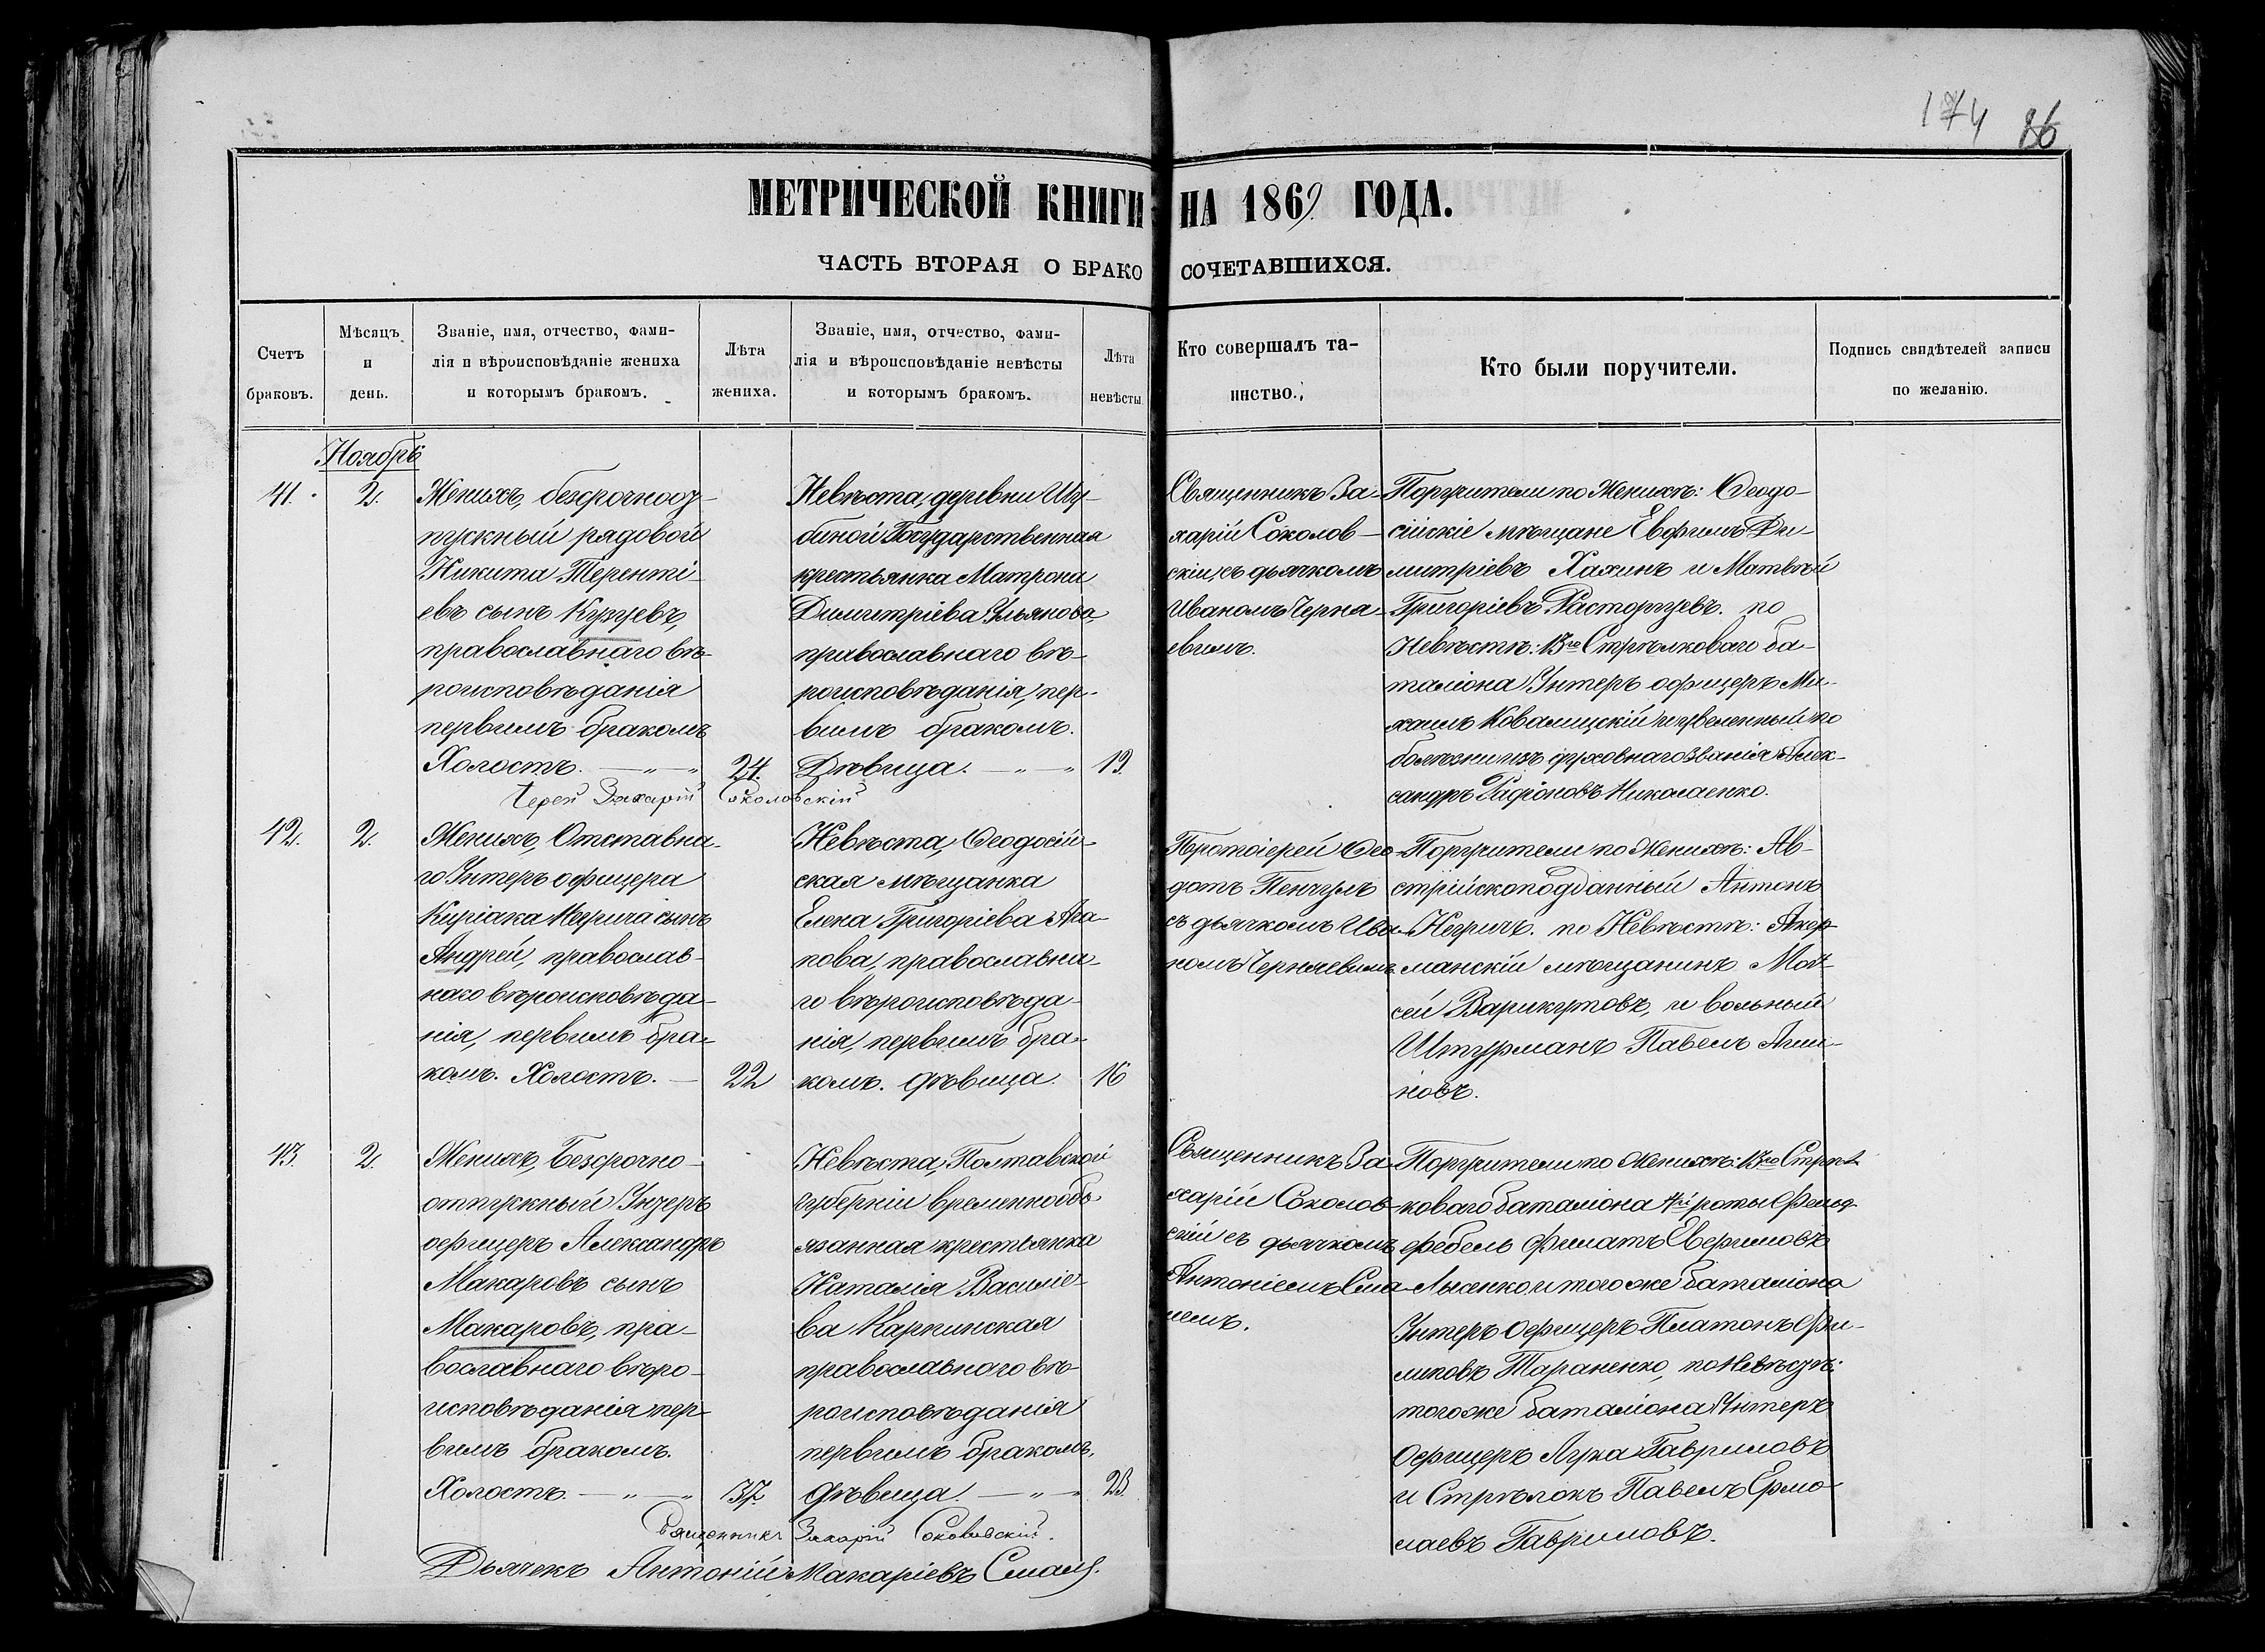 174 86
МЕТРИЧЕСКОЙ КНИГИ НА 1869 ГОДА.
ЧАСТЬ ВТОРАЯ О БРАКОСОЧЕТАВШИХСЯ.
Счетъ браковъ.
Мѣсяцъ и день.
Званіе, имя, отчество, фами-
лія и вѣроисповѣданіе жениха
и которымъ бракомъ.
Лѣта жениха.
Званіе, имя, отчество, фами-
лія и вѣроисповѣданіе невѣсты
и которымъ бракомъ.
Лѣта невѣсты
Кто совершалъ та-
инство.
Кто были поручители.
Подпись свидѣтелей записи
по желанію.
Ноябрь
41.
2.
Женихъ, безсрочноот-
пускный рядовой
Никита Теренті-
евъ сынъ Кузуевъ,
православнаго вѣ-
роисповѣданія
первымъ бракомъ
Холостъ. — „ — „
24.
Невѣста, деревни Шу-
биной Государственная
крестьянка Матрона
Димитріева Ульянова
православнаго вѣ-
роисповѣданія, пер-
вымъ бракомъ.
Дѣвица. — „ — „
19.
Священникъ За-
харій Соколов-
скій съ дьячкомъ
Иваномъ Черня-
евымъ.
Поручители по Женихѣ: Ѳеодо-
сійскіе мѣщане Евфимъ Ди-
митріевъ Хахинъ и Матвѣй
Григоріевъ Расторгуевъ. по
Невѣстѣ: 13го Стрѣлковаго ба-
таліона Унтеръ офицеръ Ми-
хаилъ Ковалицкій и уволенный по
болѣзни изъ духовнаго званія Алек-
сандръ Радіоновъ Николаенко.
Іерей Захарій Соколовскій
42.
2.
Женихъ, Отставна-
го Унтеръ офицера
Киріака Негрича сынъ
Андрей, православ-
наго вѣроисповѣда-
нія, первымъ бра-
комъ. Холостъ. —
22
Невѣста, Ѳеодосій-
ская мѣщанка
Елена Григоріева Ага-
пова, православна-
го вѣроисповѣда-
нія, первымъ бра-
комъ. дѣвица.
16
Протоіерей Ѳео-
дотъ Пенчулъ
съ дьячкомъ Ива-
номъ Черняевымъ
Поручители по Женихѣ: Ав-
стрійскоподданный Антонъ
Негричъ. по Невѣстѣ: Акер-
манскій мѣщанинъ Мои-
сей Варикутовъ, и вольный
Штурманъ Павелъ Агій-
новъ.
43.
2.
Женихъ, Безсрочно-
отпускный Унтеръ
офицеръ Александръ
Макаровъ сынъ
Макаровъ, пра-
вославнаго вѣро-
исповѣданія пер-
вымъ бракомъ.
Холостъ. — „ — „
37.
Невѣста, Полтавской
губерніи временнообъ-
язанная крестьянка
Наталія Василіе-
ва Карпинская
православнаго вѣ-
роисповѣданія
первымъ бракомъ,
дѣвица. — „ —
23.
Священникъ За-
харій Соколов-
скій съ дьячкомъ
Антоніемъ Сма-
лемъ.
Поручители по Женихѣ: 13го Стрѣл-
коваго баталіона 4й роты Фельд-
фебель Филатъ Евфимовъ
Лысенко и того же баталіона
Унтеръ Офицеръ Платонъ Фи-
липовъ Тараненко, по Невѣстѣ:
того же баталіона Унтеръ
Офицеръ Лука Гавриловъ
и Стрѣлокъ Павелъ Ермо-
лаевъ Гавриловъ.
Священникъ Захарій Соколовскій.
Дьячекъ Антоній Макаріевъ Смаль.